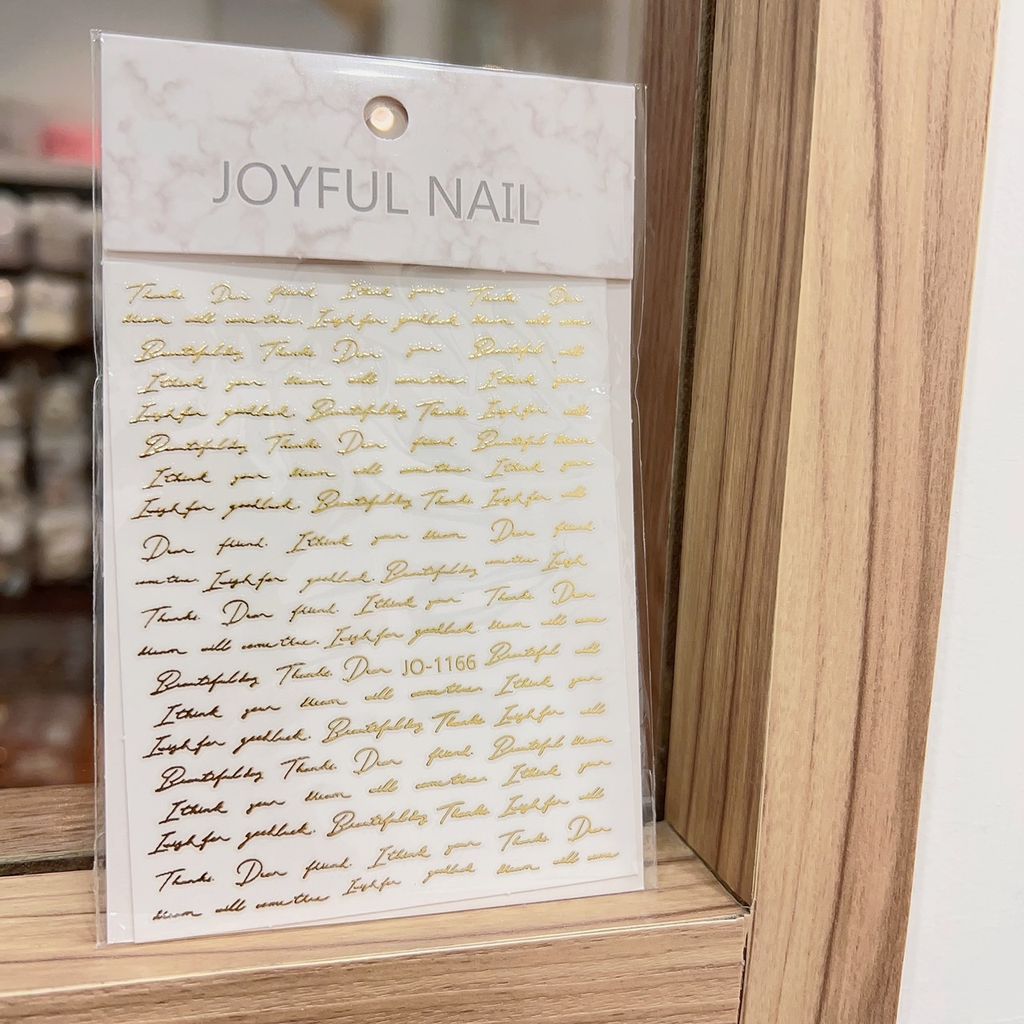 JOYFUL NAIL
Thanks. Dear friend. I think your Thanks. Dear
dream will come true. I wish for good luck. dream will come
Beautiful day Thanks. Dear your Beautiful will
I think your dream will come true. I think your
I wish for good luck. Beautiful day Thanks. I wish for will
Beautiful day Thanks. Dear friend. Beautiful dream
I think your dream will come true. I think your
I wish for good luck. Beautiful day Thanks. I wish for will
Dear friend. I think your dream Dear friend.
come true. I wish for good luck. Beautiful day come true I wish
Thanks. Dear friend. I think your Thanks. Dear
dream will come true. I wish for good luck. dream will come
Beautiful day Thanks. Dear JO-1166 Beautiful will
I think your dream will come true. I think your
I wish for good luck. Beautiful day Thanks. I wish for will
Beautiful day Thanks. Dear friend. Beautiful dream
I think your dream will come true. I think your
I wish for good luck. Beautiful day Thanks. I wish for will
Thanks. Dear friend. I think your Thanks. Dear
dream will come true I wish for good luck dream will come